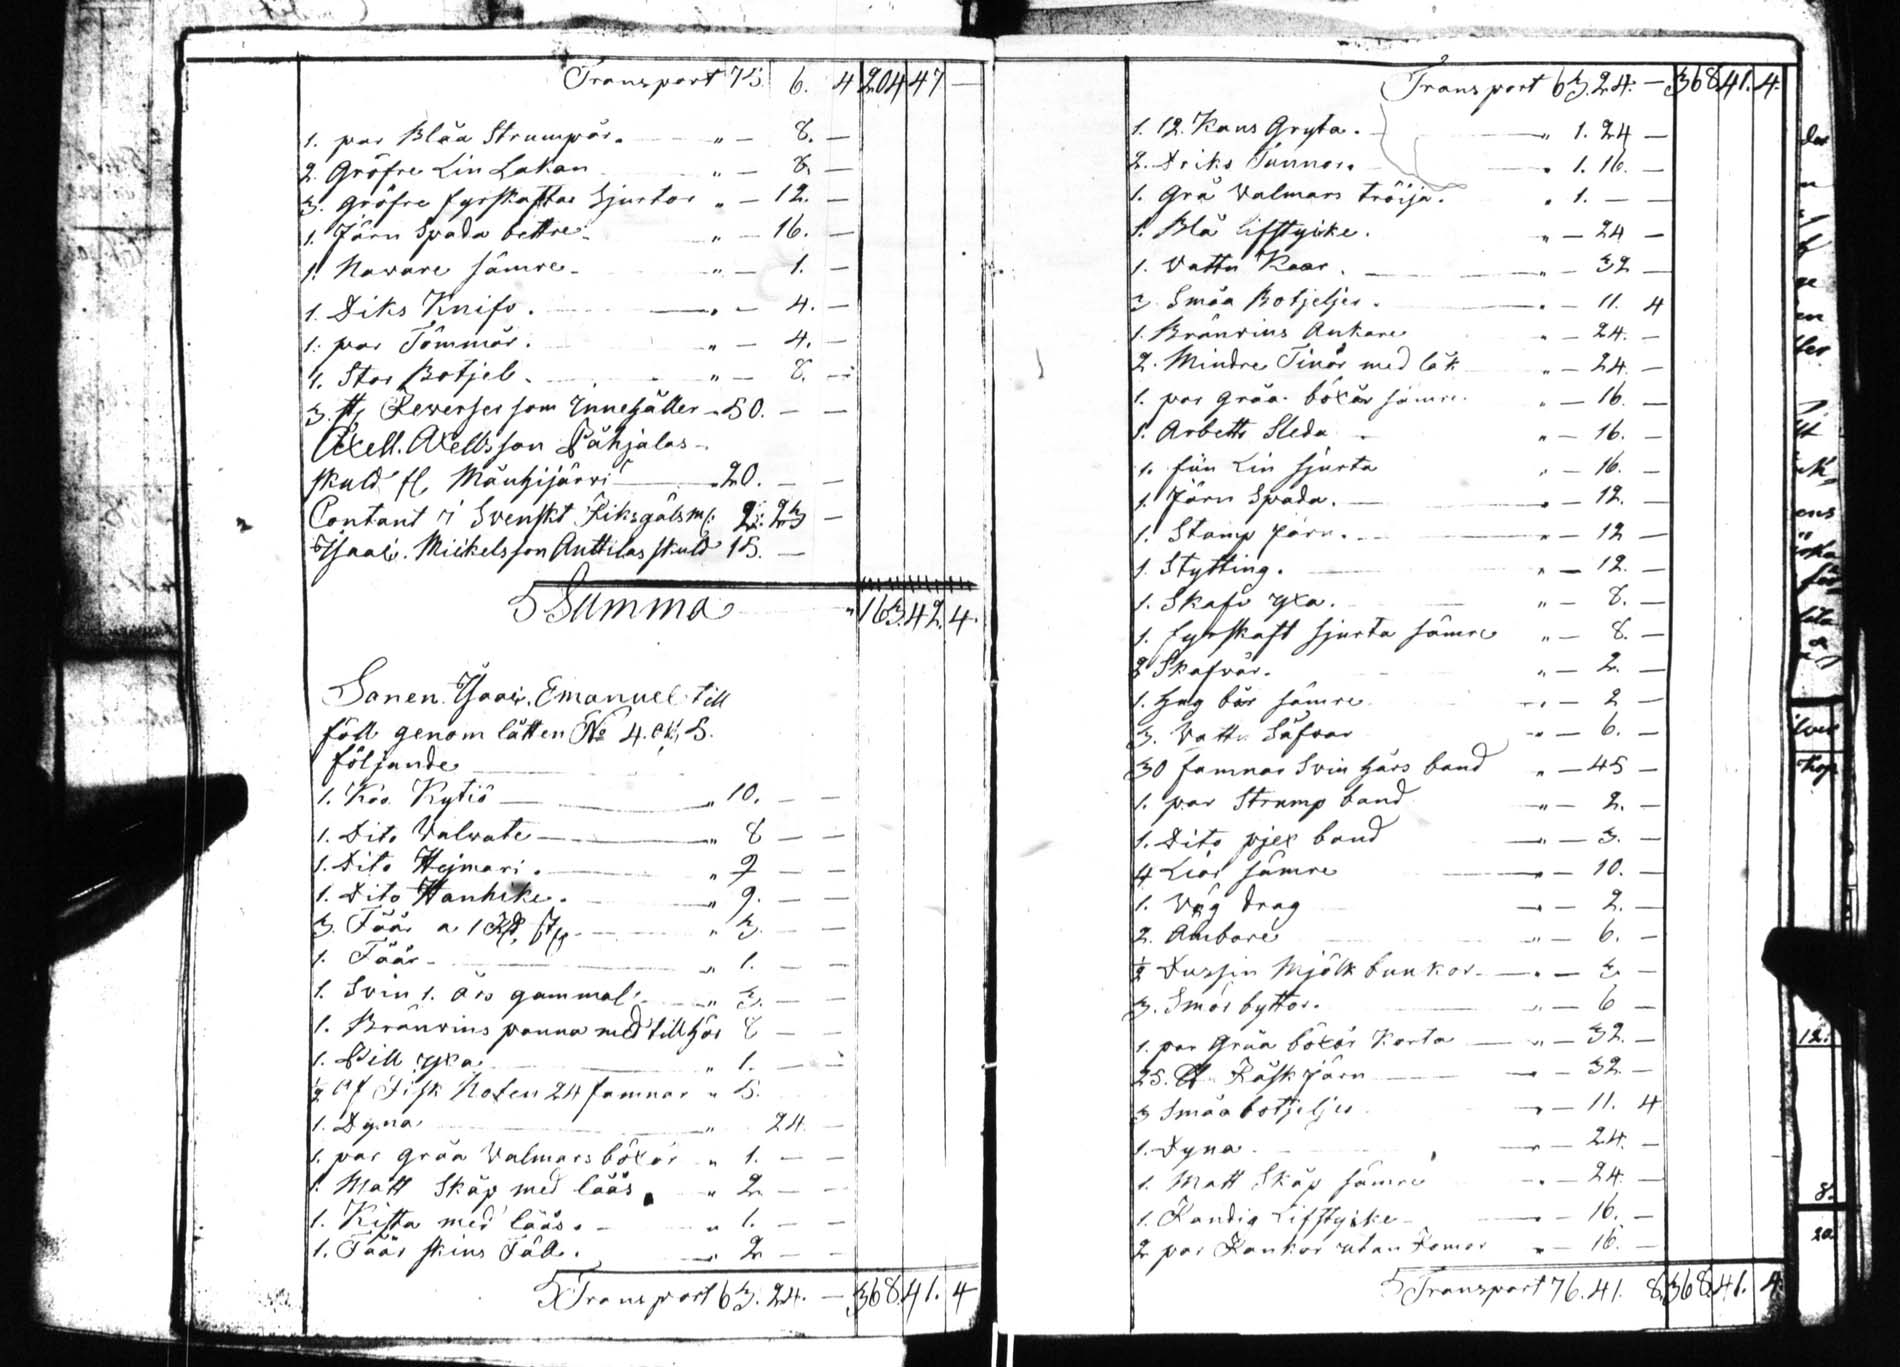 Transport 75. 6. 4 204 47 —
1. par Blåa Strumpår. " — 8. —
2. Gröfre Lin Lakan " — 8. —
3. gröfre fyrskaftas Sjurtor " — 12. —
1. Järn Spada bettre " — 16. —
1. Navare sämre " — 1. —
1. Diks Knifv. " — 4. —
1. par Tömmar. " — 4. —
1. Stor Botjel. " — 8. —
3. st. Reverser som Innehåller " 50. — —
Axell. Axellsson Pähjalas
skuld fl. Mäuhijärvi " 20. — —
Contant i Svenskt Riksgälsm: 2: 23 —
Isaac. Mickelsson Anttilas skuld 15. —
Summa " 163. 42. 4.
Sonen Isaac. Emanuel till
föll genom låtten No 4. och 5.
följande
1. Koo Kytiö " 10. — —
1. Dito Valvate " 8 — —
1. Dito Hejmari. " 9 — —
1. Dito Hanhike. " 9. — —
3. Fåår a 1 Rd. st. " 3. — —
1. Fåår " 1. — —
1. Svin 1. års gammal " 3. — —
1. Bränvins panna med tillhör 8 — —
1. Bill yxa " 1. — —
1/2 af Fisk Noten 24 famnar " 5.
1. Dyna " 24. —
1. par gråa Valmars böxor " 1. — —
1. Matt Skåp med låås " 2 — —
1. Kista med låås. " 1. — —
1. Fåår skins Fäll. " 2 — —
Transport 63. 24. — 368 41. 4
Transport 63. 24. — 368 41. 4.
1. 12. Kans Gryta. " 1. 24 —
2. Driks Tunnor. " 1. 16. —
1. Grå Valmars tröija. " 1. — —
1. Blå Lifstycke. " — 24 —
1. Vattu Kaar. " — 32 —
3 Småa Botjeljer. " — 11. 4
1. Bränvins Ankare " — 24. —
2. Mindre Tinor med låk " — 24. —
1. par gråa böxor sämre " — 16. —
1. Arbetts Släda " — 16. —
1. fiin Lin sjurta " — 16. —
1. Järn Spada. " — 12. —
1. Stamp Järn. " — 12 —
1. Stytting. " — 12. —
1. Skafv yxa. " — 8. —
1. fyrskaft sjurta sämre " — 8. —
2 Skafvar. " — 2. —
1. Hug bår sämre " — 2 —
3. Vattu Såfvar " — 6. —
30 famnar Svin hårs band " — 45 —
1. par Strump band " — 2. —
1. Dito pjex band " — 3. —
4 Liar sämre " — 10. —
1. Våg drag " — 2. —
2. Ambare " — 6. —
1/2 Dussin Mjölk bunkor " — 3 —
3. Smör byttor. " — 6 —
1. par Gråa böxor Korta " — 32. —
25. ℔ Räsk järn " — 32. —
3 Småa botjeljer " — 11. 4
1. Dyna " — 24. —
1. Matt Skåp sämre " — 24. —
1. Randig Lifstycke " — 16. —
2 par Rankor utan Romor " — 16. —
Transport 76. 41. 8. 368. 41. 4.